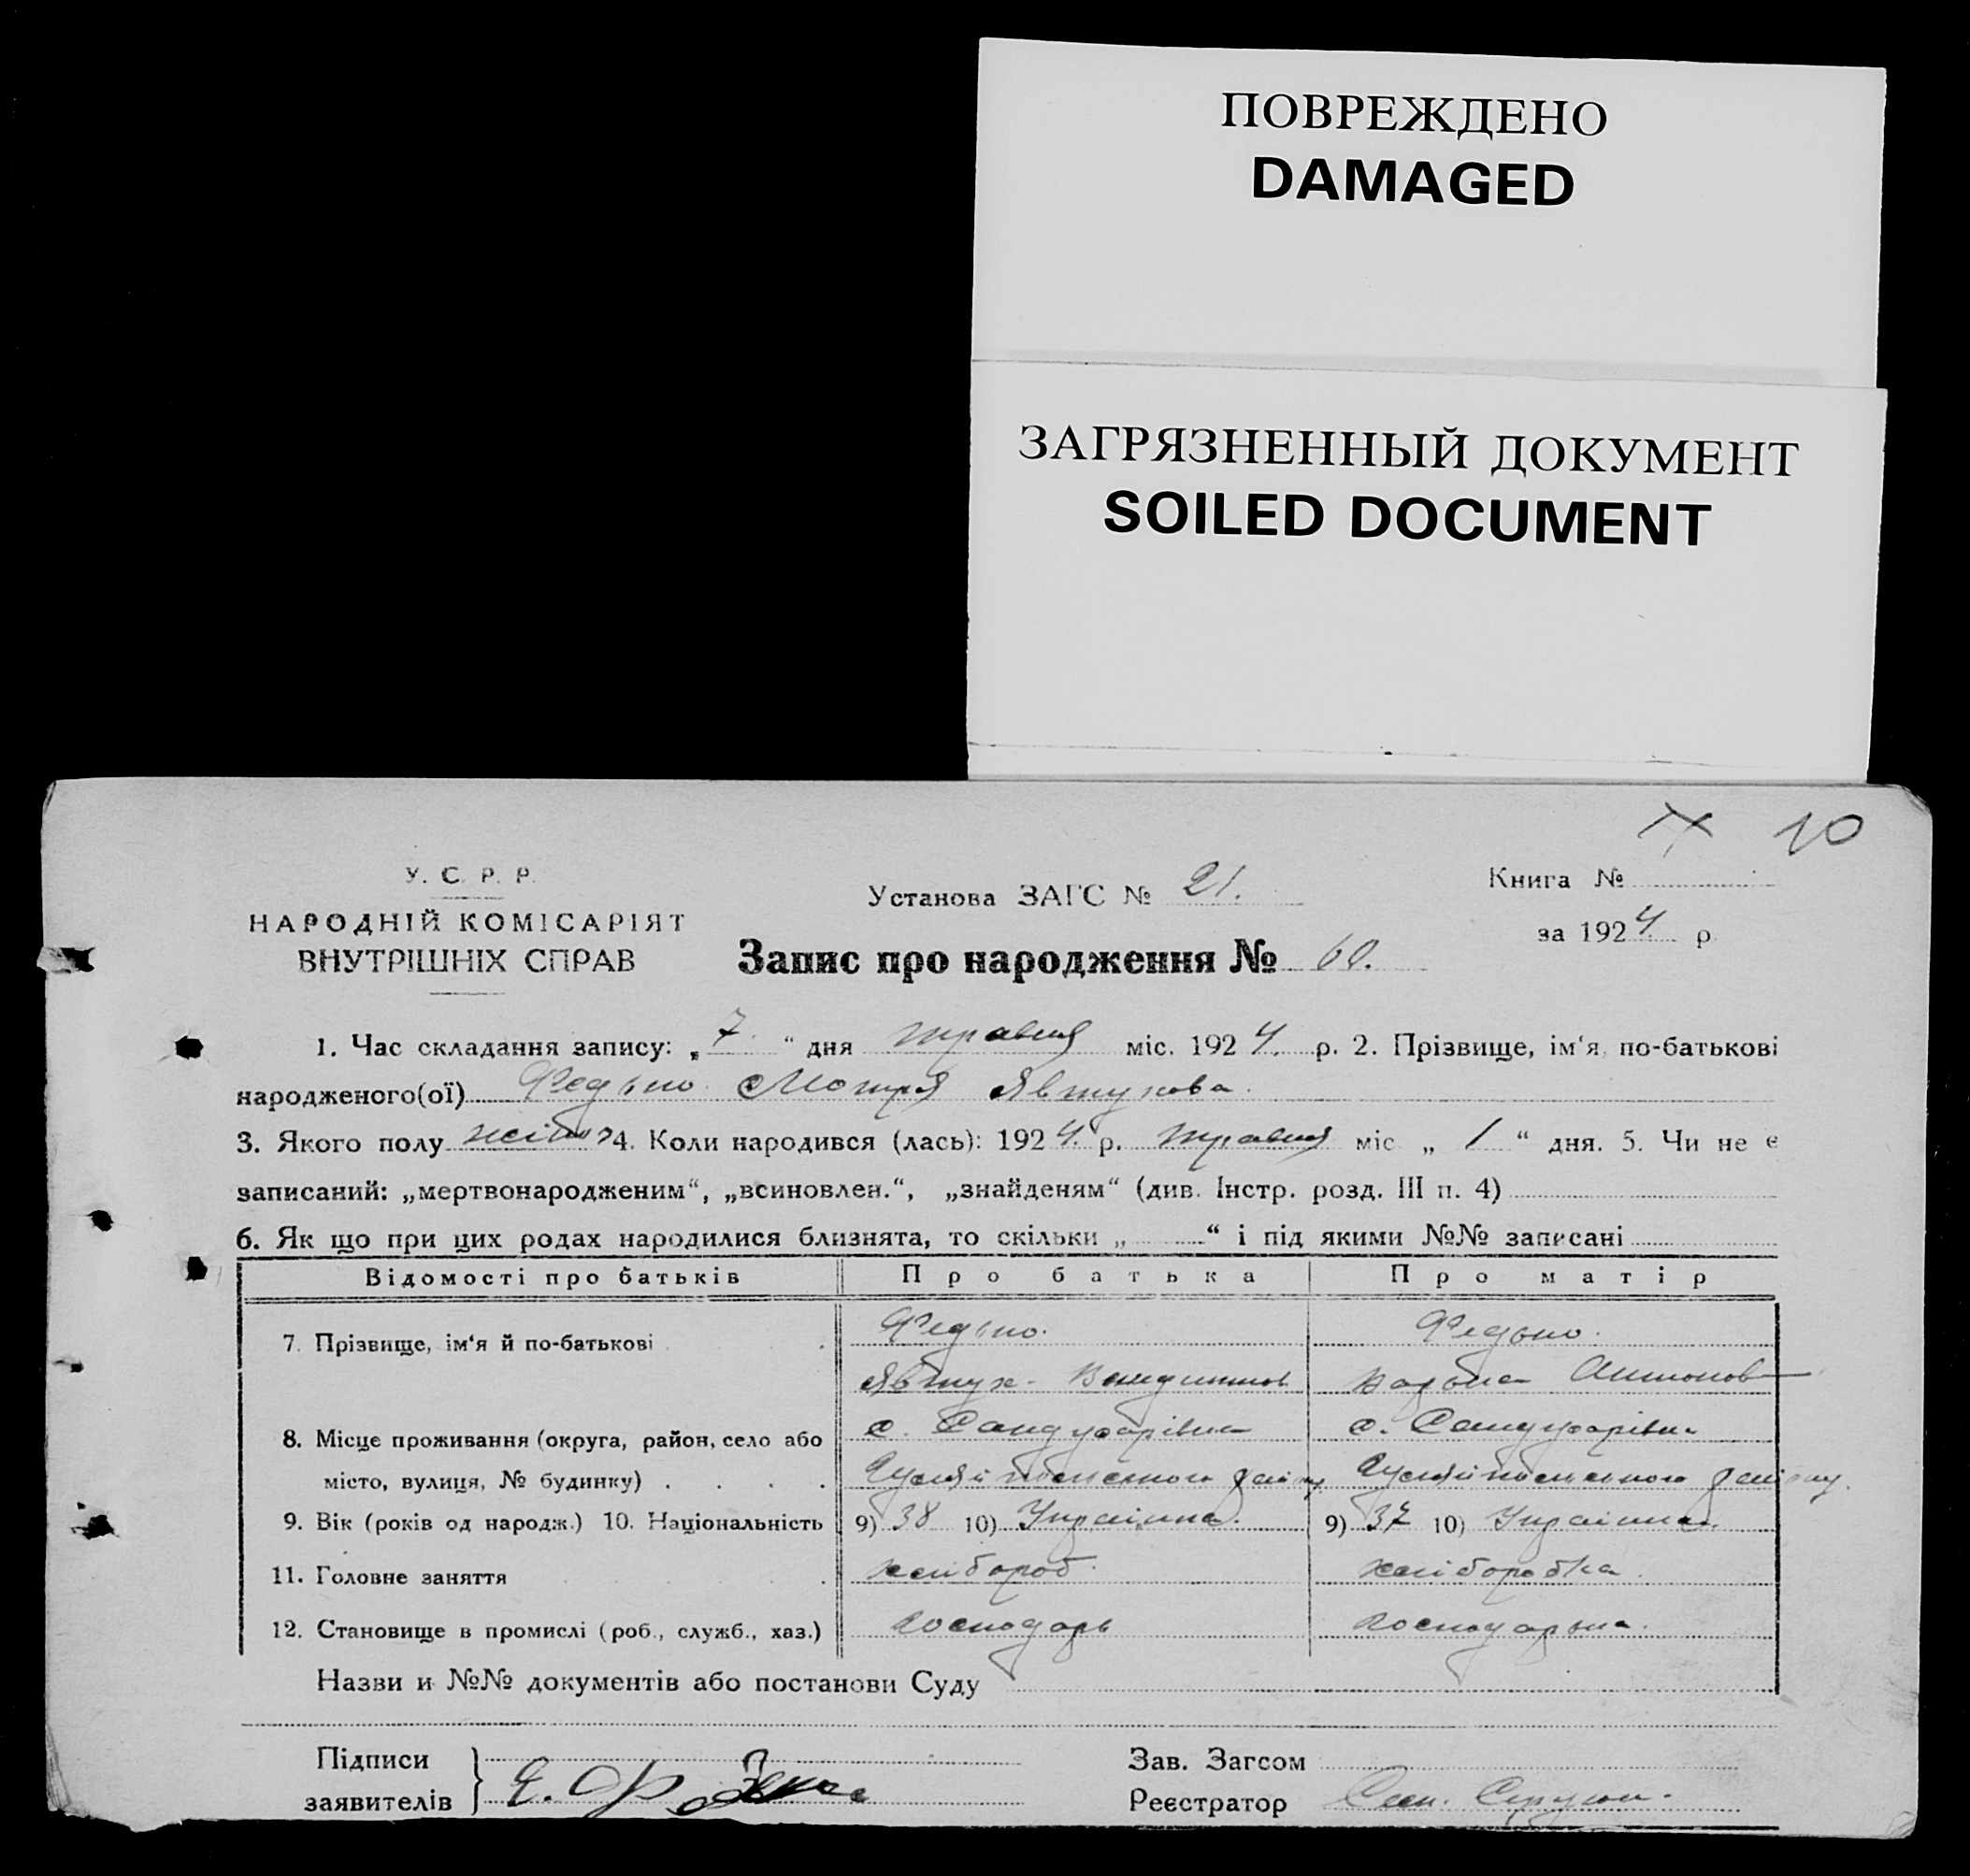 ПОВРЕЖДЕНО
DAMAGED
ЗАГРЯЗНЕННЫЙ ДОКУМЕНТ
SOILED DOCUMENT
10
У. С. Р. Р.
НАРОДНІЙ КОМІСАРІЯТ
ВНУТРІШНІХ СПРАВ
Установа ЗАГС № 21.
Книга №
за 1924 р.
Запис про народження № 60.
1. Час складання запису: „7“ дня травня міс. 1924. р. 2. Прізвище, ім‘я, по-батькові
народженого(ої) Федько Мотря Явтухова.
3. Якого полу жіноч 4. Коли народився (лась): 1924. р. травня міс „1“ дня. 5. Чи не є
записаний: „мертвонародженим“, „всиновлен.“, „знайденям“ (див. Інстр. розд. III п. 4)
6. Як що при цих родах народилися близнята, то скільки „ “ і під якими №№ записані
Відомості про батьків Про батька Про матір
7. Прізвище, ім‘я й по-батькові Федько. Федько.
Явтух Антонов
8. Місце проживання (округа, район, село або с. с.
місто, вулиця, № будинку) району району
9. Вік (років од народж.) 10. Національність 9) 38 10) Українець 9) 37 10) Українка.
11. Головне заняття хлібороб. хліборобка.
12. Становище в промислі (роб., служб., хаз.) господарь господарька.
Назви и №№ документів або постанови Суду
Підписи
заявителів
Зав. Загсом
Реєстратор